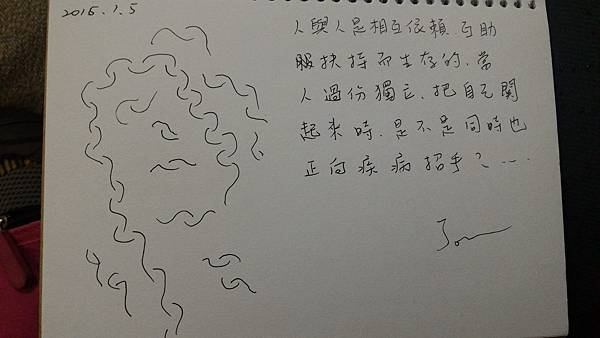 2015.1.5
人與人是相互依賴.互助
服扶持而生存的.當
人過份獨立.把自己關
起來時.是不是同時也
正向疾病招手?…